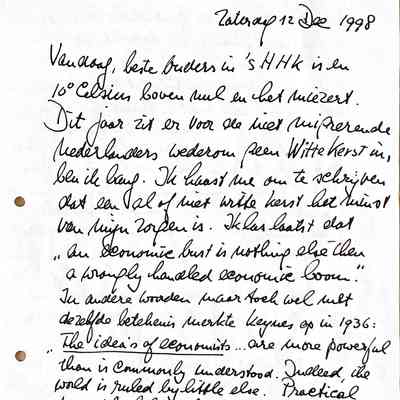 Zaterdag 12 Dec 1998
Vandaag, beste Ouders in 'sHHK is en
10° Celsius boven nul en het miezert.
Dit jaar zit er voor de niet migrerende
Nederlanders wederom geen Witte Kerst in,
ben ik bang. Ik haast me om te schrijven
dat een al of niet witte kerst het minst
van mijn zorgen is. Ik las laatst dat
„ an economic bust is nothing else then
a wrongly handled economic boom."
In andere woorden maar toch wel met
dezelfde betekenis merkte Keynes op in 1936:
„ The idea's of economists ... are more powerful
than is commonly understood. Indeed, the
world is ruled by little else. Practical